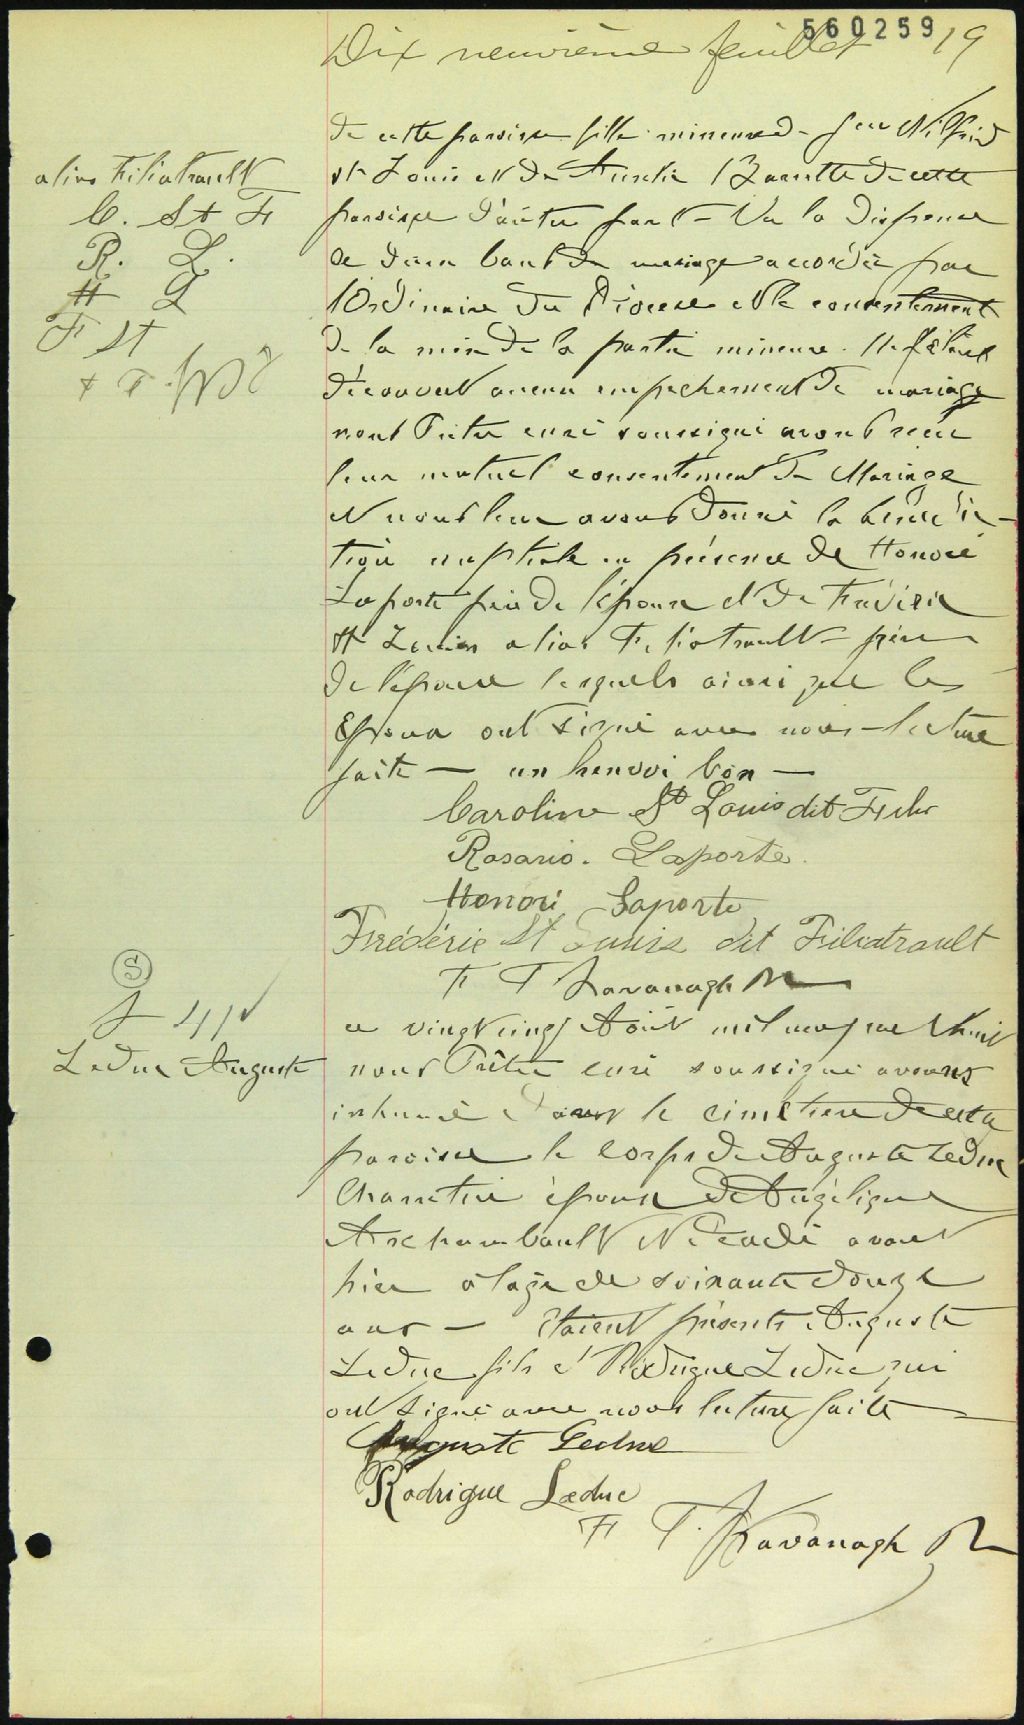 560259
Dix neuvième feuillet 19
de cette paroisse fille mineure de feu Wilfrid
alias Filiatrault
St Louis et de Aurélie de cette
C. St F
paroisse d'autre part - Vu la dispense
R. L.
de deux bans de mariage accordée par
H L
l'Ordinaire du Diocèse et le consentement
F St
de la mère de la partie mineure. Ne s'étant
F. T. K
découvert aucun empêchement de mariage
nous Prêtre curé soussigné avons reçu
leur mutuel consentement de Mariage
et nous leur avons donné la bénédic-
tion nuptiale en présence de Honoré
Laporte père de l'époux et de Frédéric
St Louis alias Filiatrault frère
de l'épouse lesquels ainsi que les
Epoux ont signé avec nous - lecture
faite - un renvoi bon -
Caroline St Louis dit Filia
Rosario. Laporte.
Honoré Laporte
Frédéric St Louis dit Filiatrault
F T Kavanagh Ptre
S
S 41
Leduc Auguste
Le vingt cinq Août mil neuf cent huit
nous Prêtre curé soussigné avons
inhumé dans le cimetière de cette
paroisse le corps de Auguste Leduc
Charretier époux de Angélique
Archambault décédé avant
hier à l'âge de soixante douze
ans - Étaient présents Auguste
Leduc fils et Rodrigue Leduc qui
ont signé avec nous lecture faite
Auguste Leduc
Rodrigue Leduc
F T. Kavanagh Ptre